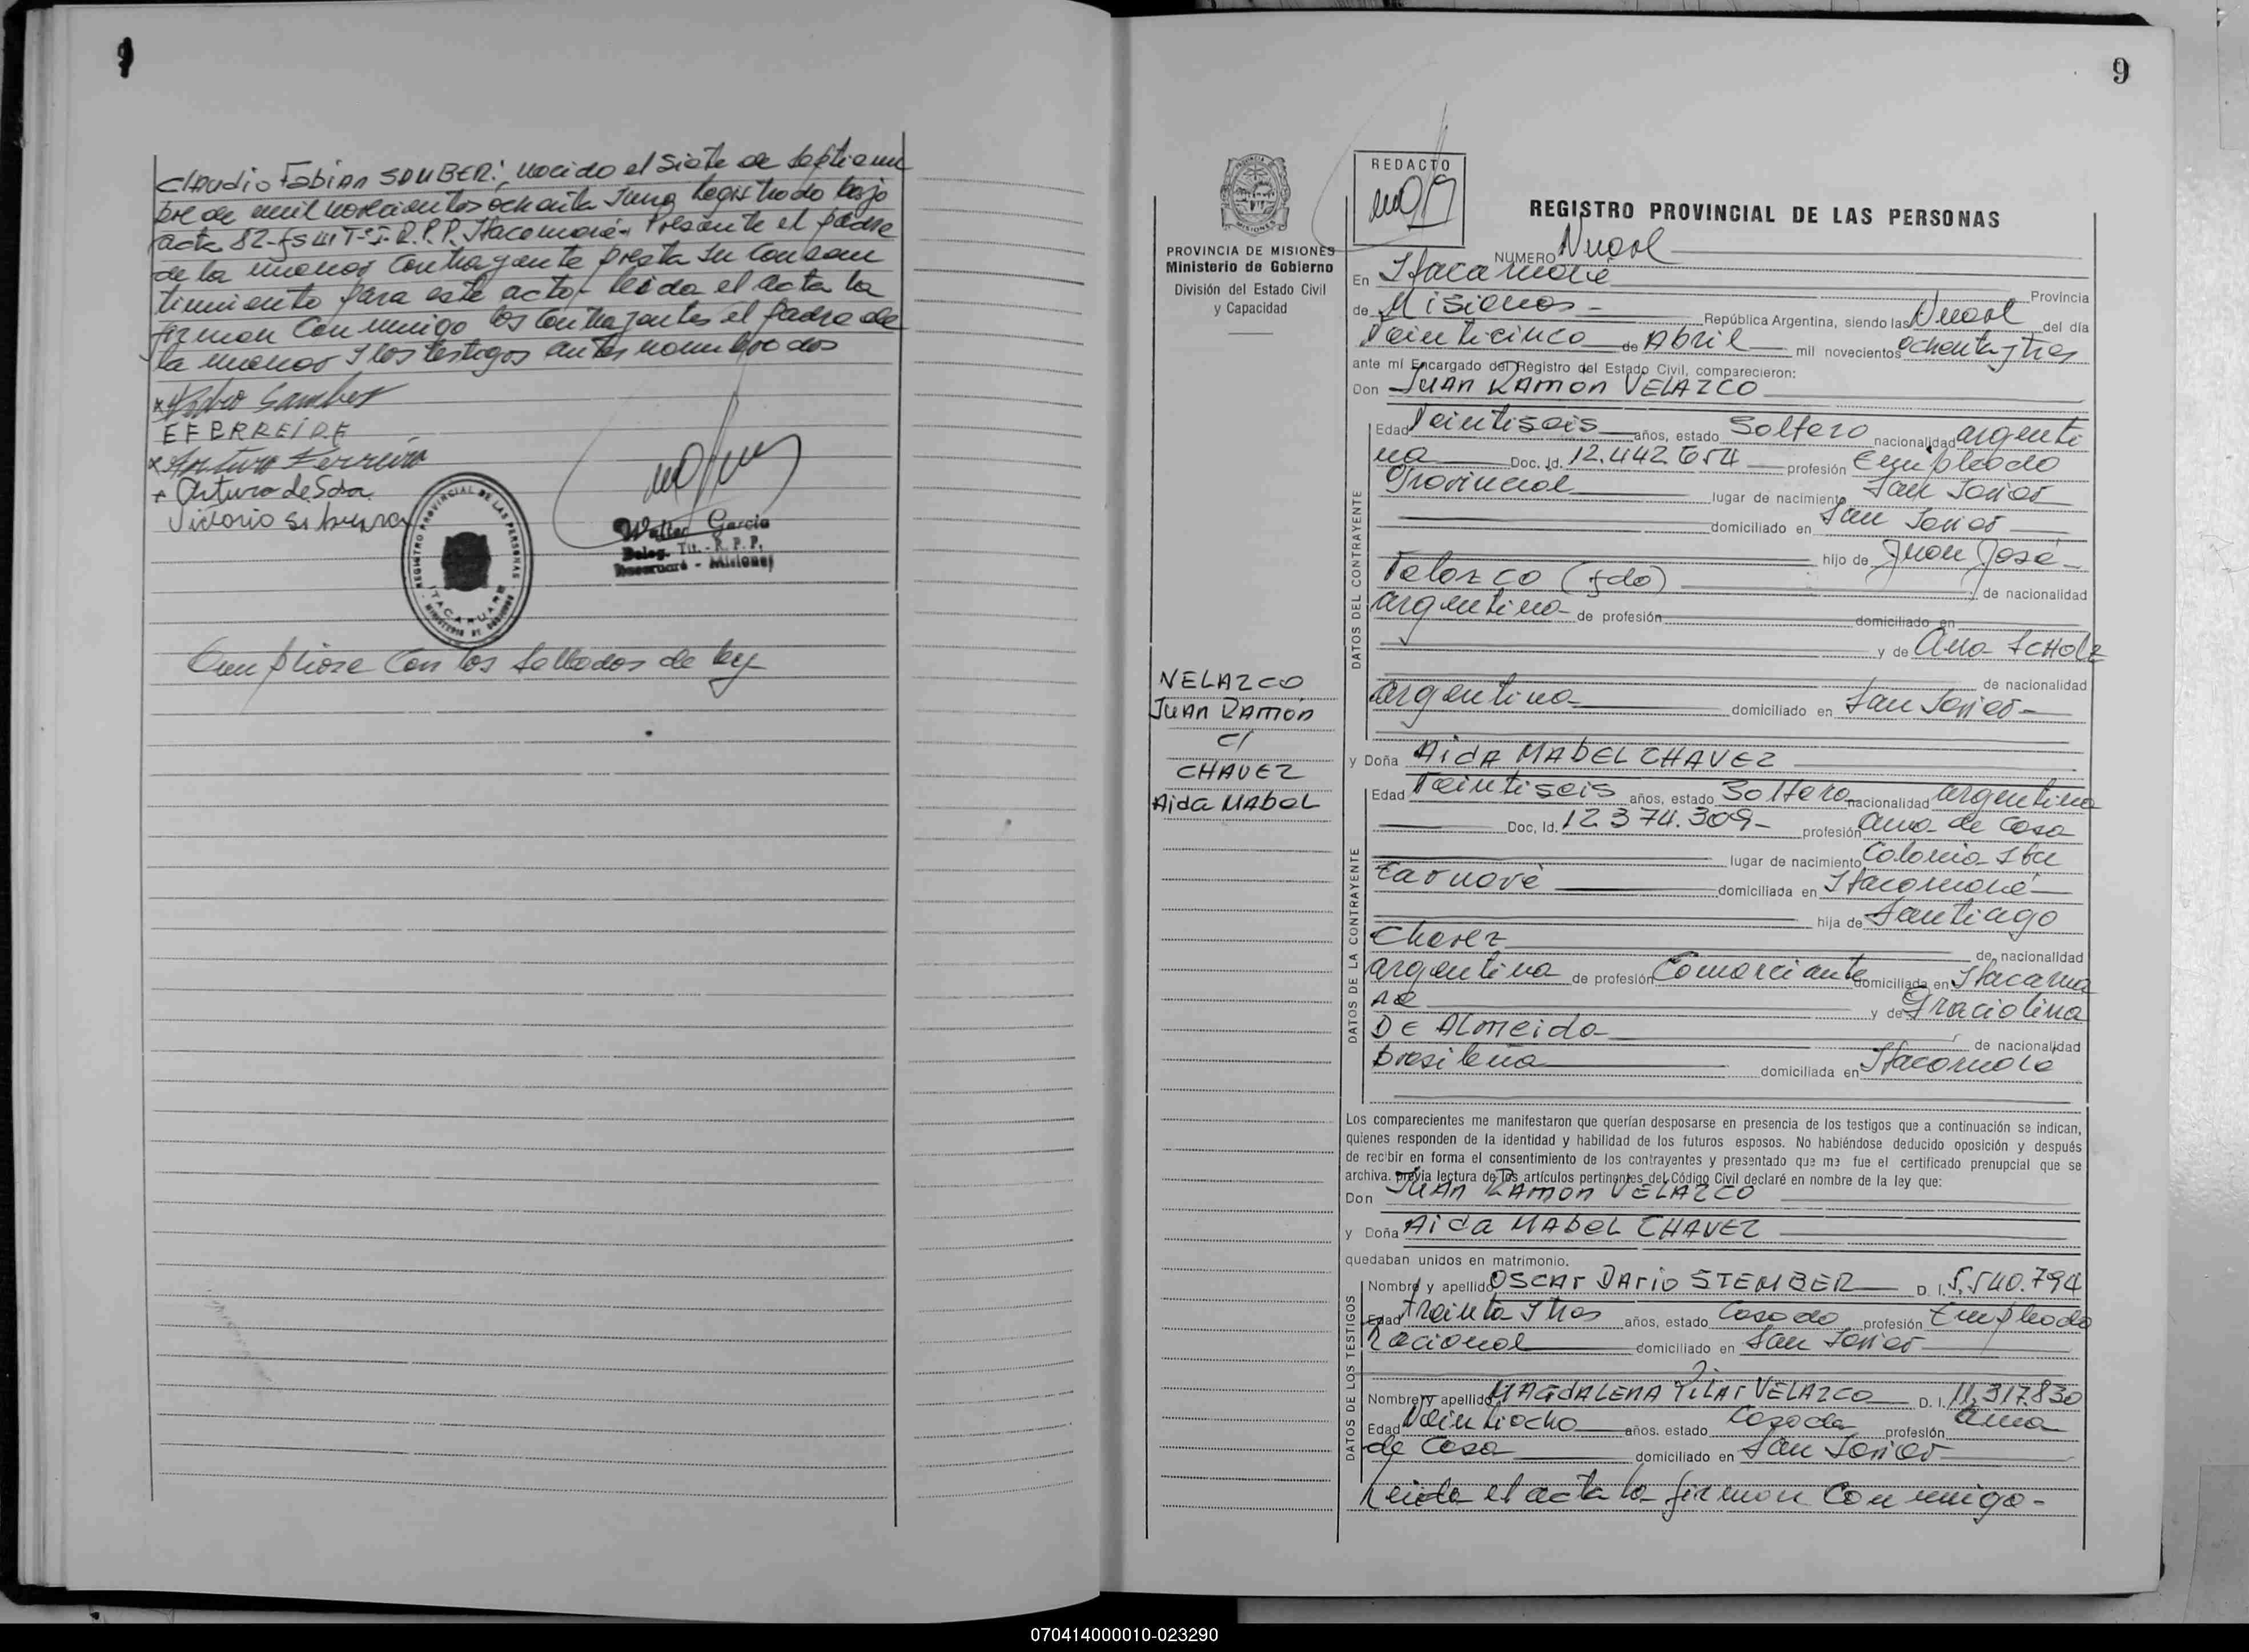 Claudio Fabian SAMBER: nacido el siete de septiem
bre de mil novecientos ochenta y uno registrado bajo
acta 82-fs 41 Tº I- R.P.P. Itacaruaré- Presente el padre
de la menor contrayente presta su consen
timiento para este acto- leida el acta la
firman conmigo los contrayentes el padre de
la menor y los testigos antes nombrados
x Pedro Samber
x Arturo Ferreira
+ Arturo de Sosa
REGISTRO PROVINCIAL DE LAS PERSONAS
ITACARUARE
Walter Garcia
Deleg. Tit. - R. P. P.
Itacaruaré - Misiones
Cumpliose con los sellados de ley
9
PROVINCIA DE MISIONES
Ministerio de Gobierno
División del Estado Civil
y Capacidad
VELAZCO
Juan Ramon
c/
CHAVEZ
Aida Mabel
REDACTO
REGISTRO PROVINCIAL DE LAS PERSONAS
NUMERO Nueve
En Itacaruaré Provincia
de Misiones- República Argentina, siendo las Nueve del día
Veinticinco de Abril mil novecientos ochenta y tres
ante mí Encargado del Registro del Estado Civil, comparecieron:
Don Juan Ramon VELAZCO
DATOS DEL CONTRAYENTE
Edad Veintiseis años, estado Soltero nacionalidad argenti
na Doc. Id. 12.442.654 profesión Empleado
Provincial lugar de nacimiento San Javier
domiciliado en San Javier
hijo de Juan José
Velazco (fdo) de nacionalidad
argentina de profesión domiciliado en
y de Ana SCHOLZ
de nacionalidad
argentina domiciliado en San Javier
y Doña Aida MABEL CHAVEZ
DATOS DE LA CONTRAYENTE
Edad Veintiseis años, estado Soltera nacionalidad argentina
Doc. Id. 12.374.309- profesión ama de casa
lugar de nacimiento Colonia Ita
caruaré domiciliada en Itacaruaré
hija de Santiago
Chavez de nacionalidad
argentina de profesión Comerciante domiciliada en Itacarua
ré y de Graciolina
DE Almeida de nacionalidad
brasileña domiciliada en Itacaruaré
Los comparecientes me manifestaron que querían desposarse en presencia de los testigos que a continuación se indican,
quienes responden de la identidad y habilidad de los futuros esposos. No habiéndose deducido oposición y después
de recibir en forma el consentimiento de los contrayentes y presentado que me fue el certificado prenupcial que se
archiva. previa lectura de los artículos pertinentes del Código Civil declaré en nombre de la ley que:
Don Juan Ramon VELAZCO
y Doña Aida MABEL CHAVEZ
quedaban unidos en matrimonio.
DATOS DE LOS TESTIGOS
Nombre y apellido OSCAR DARIO STEMBER D. I. 5.540.794
Edad treinta y tres años, estado Casado profesión Empleado
Nacional domiciliado en San Javier
Nombre y apellido MAGDALENA PILAR VELAZCO D. I. 11.317.830
Edad Veintiocho años. estado Casada profesión ama
de casa domiciliado en San Javier
Leida el acta la firman conmigo-
070414000010-023290